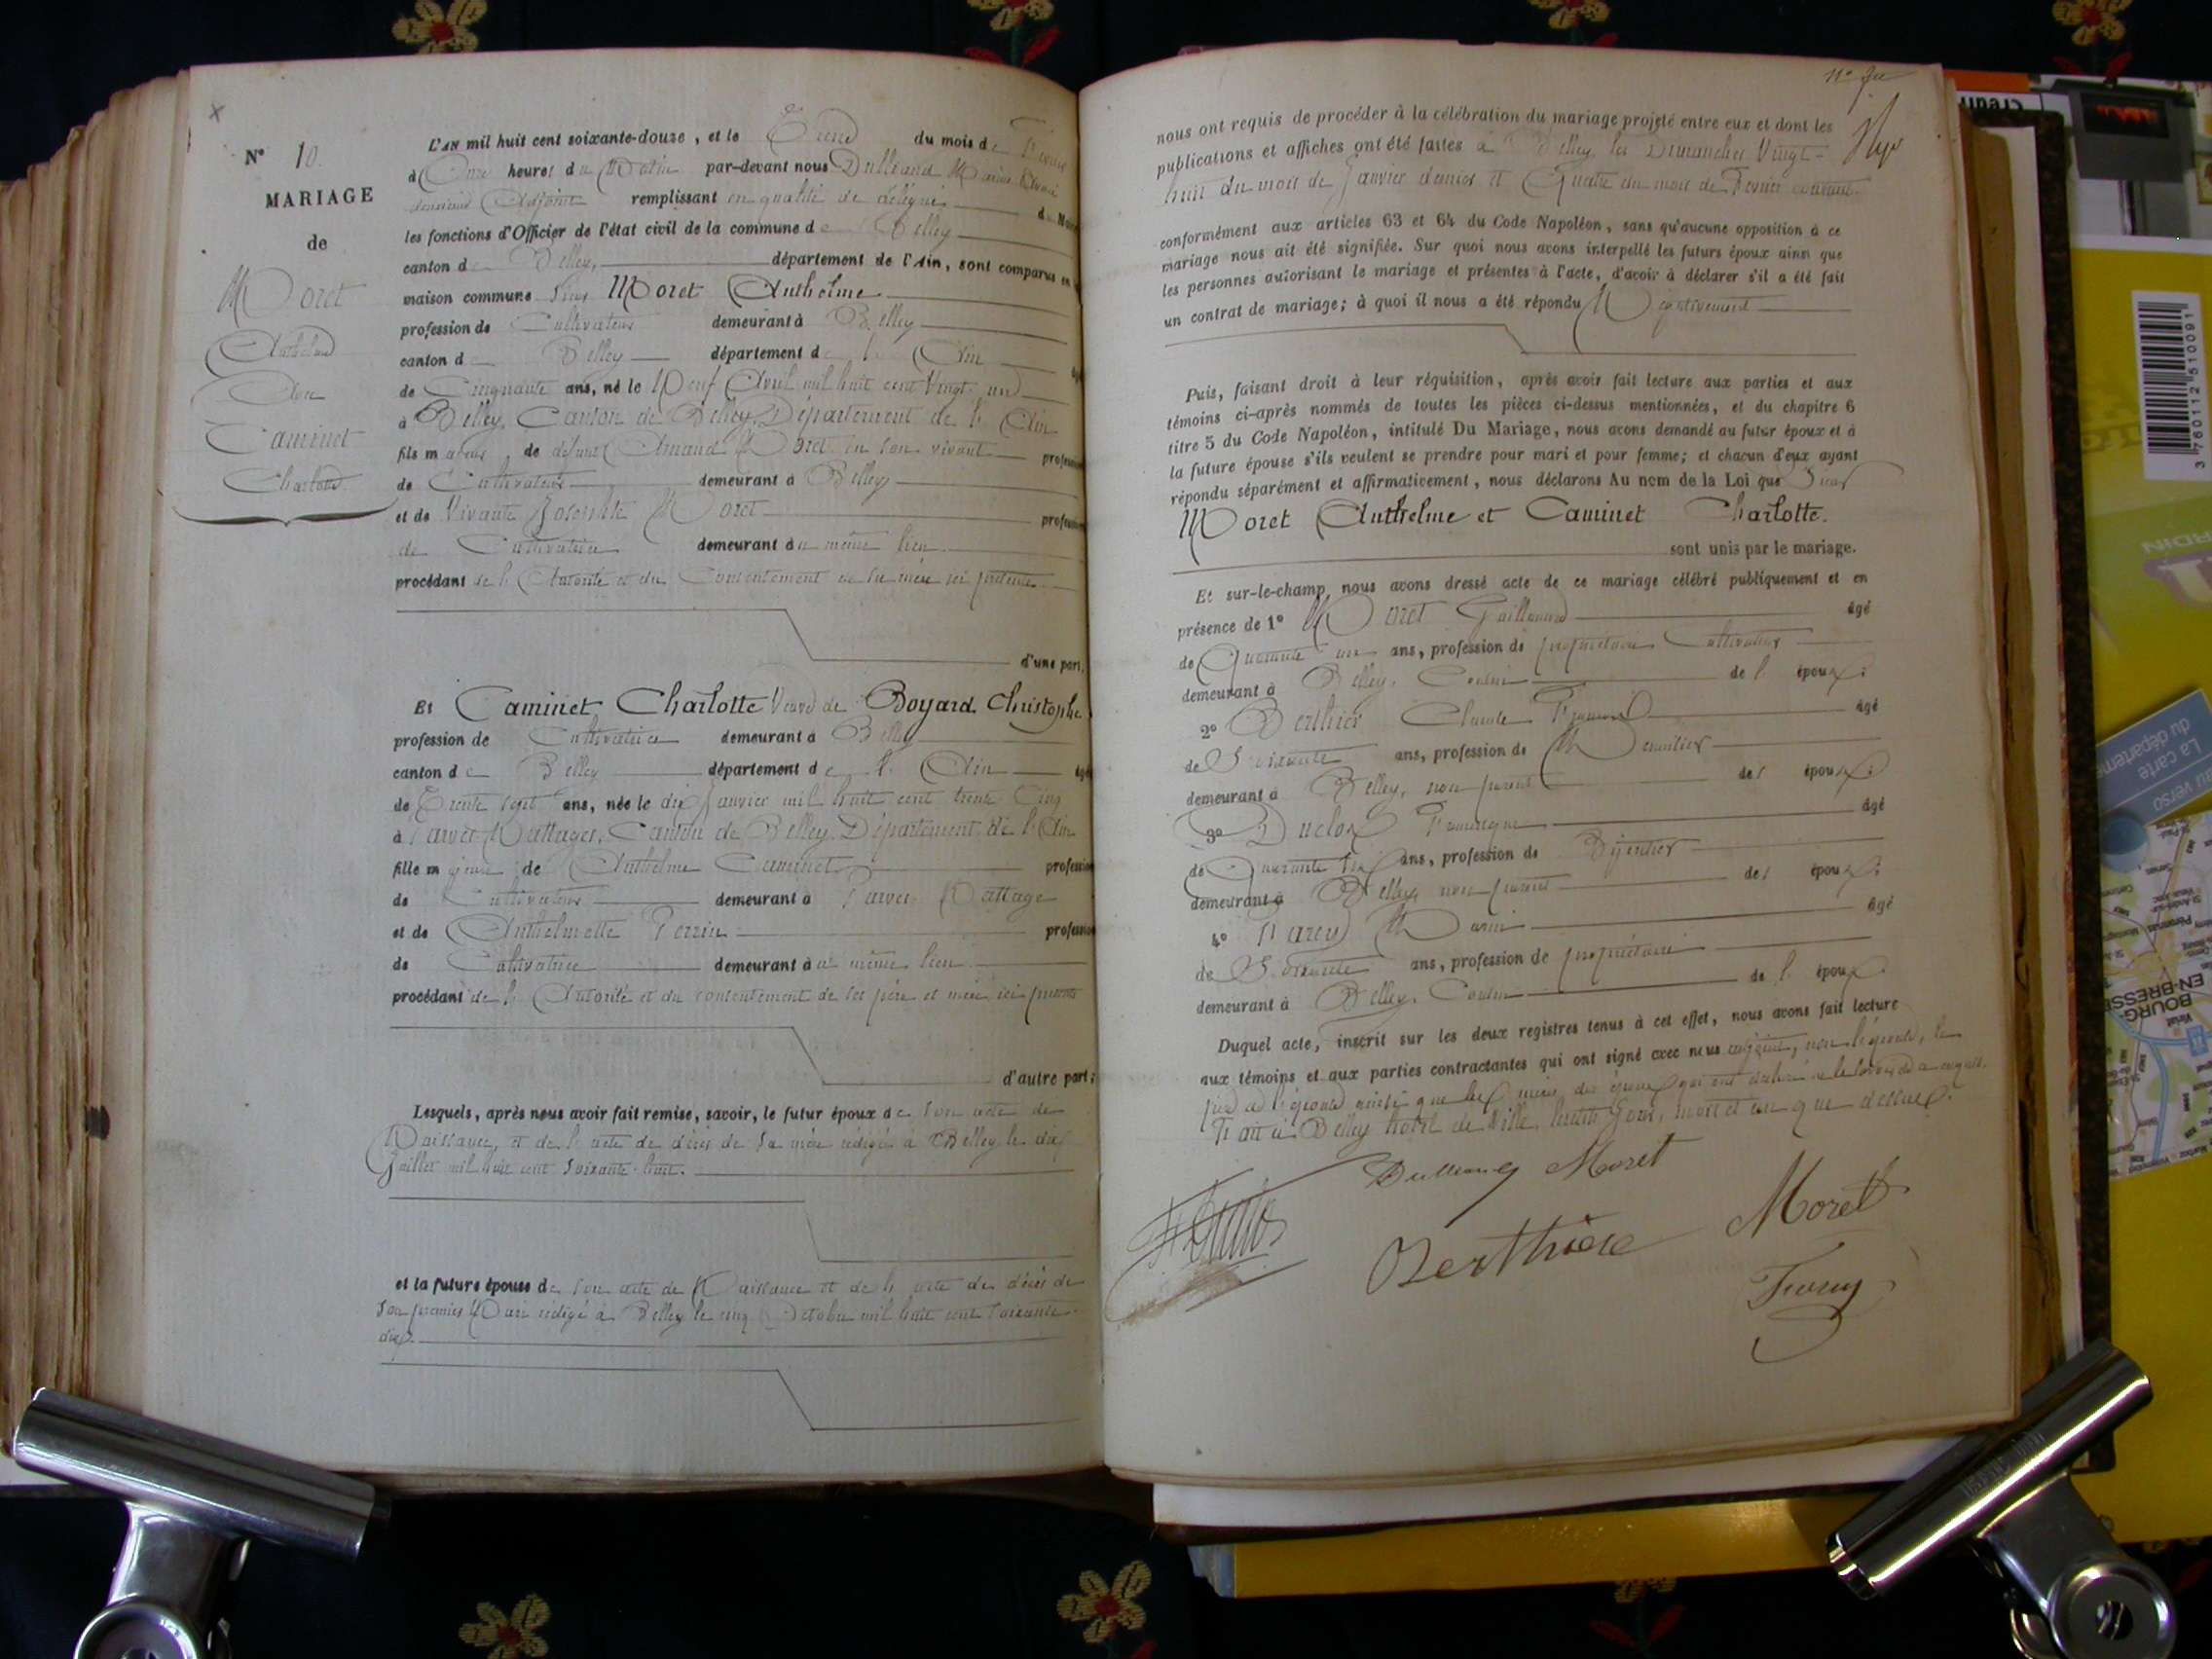 N° 10.
MARIAGE
de
Moret
Anthelme
Avec
Caminet
Charlotte
L'AN mil huit cent soixante-douze, et le Treize du mois de Février
à Onze heures du Matin par-devant nous Dulleand Marin
Adjoint remplissant en qualité de délégué
les fonctions d'Officier de l'état civil de la commune de Belley
canton de Belley, département de l'Ain, sont comparus en
maison commune Sieur Moret Anthelme
profession de Cultivateur demeurant à Belley
canton de Belley département de l'Ain
de Cinquante ans, né le Neuf Avril mil huit cent Vingt-un
à Belley, Canton de Belley, Département de l'Ain
fils majeur de défunt Amand Moret en son vivant profession
de Cultivateur demeurant à Belley
et de Vivante Josephte Moret profession
de Cultivatrice demeurant au même lieu
procédant de l'Autorité et du Consentement de sa mère ici présente
d'une part,
Et Caminet Charlotte Veuve de Boyard Christophe
profession de Cultivatrice demeurant à Belley
canton de Belley département de l'Ain âgé
de Trente sept ans, née le dix Janvier mil huit cent trente Cinq
à Parves Nattages, Canton de Belley, Département de l'Ain
fille majeure de Anthelme Caminet profession
de Cultivateur demeurant à Parves Nattage
et de Anthelmette Perrin profession
de Cultivatrice demeurant au même lieu
procédant de l'Autorité et du consentement de ses père et mère ici présents
d'autre part;
Lesquels, après nous avoir fait remise, savoir, le futur époux de son acte de
Naissance, et de l'acte de décès de sa mère rédigé à Belley le dix
Juillet mil huit cent soixante-huit.
et la future épouse de son acte de Naissance et de l'acte de décès de
son premier Mari rédigé à Belley le cinq Octobre mil huit cent soixante-
dix.
nous ont requis de procéder à la célébration du mariage projeté entre eux et dont les
publications et affiches ont été faites à Belley les Dimanches Vingt-
huit du mois de Janvier dernier et Quatre du mois de Février courant
conformément aux articles 63 et 64 du Code Napoléon, sans qu'aucune opposition à ce
mariage nous ait été signifiée. Sur quoi nous avons interpellé les futurs époux ainsi que
les personnes autorisant le mariage et présentes à l'acte, d'avoir à déclarer s'il a été fait
un contrat de mariage; à quoi il nous a été répondu Négativement
Puis, faisant droit à leur réquisition, après avoir fait lecture aux parties et aux
témoins ci-après nommés de toutes les pièces ci-dessus mentionnées, et du chapitre 6
titre 5 du Code Napoléon, intitulé Du Mariage, nous avons demandé au futur époux et à
la future épouse s'ils veulent se prendre pour mari et pour femme; et chacun d'eux ayant
répondu séparément et affirmativement, nous déclarons Au nom de la Loi que Sieur
Moret Anthelme et Caminet Charlotte.
sont unis par le mariage.
Et sur-le-champ nous avons dressé acte de ce mariage célébré publiquement et en
présence de 1° Moret Guillaume âgé
de Quarante un ans, profession de propriétaire Cultivateur
demeurant à Belley, Cousin de l'époux;
2° Berthier Claude François âgé
de Soixante ans, profession de Menuisier
demeurant à Belley, non parent des époux;
3° Duclos François âgé
de Quarante six ans, profession de Bijoutier
demeurant à Belley, non parent des époux;
4° Marin âgé
de Soixante ans, profession de propriétaire
demeurant à Belley, Cousin de l'époux.
Duquel acte, inscrit sur les deux registres tenus à cet effet, nous avons fait lecture
aux témoins et aux parties contractantes qui ont signé avec nous adjoint, non l'épouse, le
père de l'épouse ainsi que les mères des époux qui ont déclaré ne le savoir de ce requis.
Fait à Belley hotel de Ville, lesdits Jour, mois et an que dessus.
Moret
Berthier
Moret
3 760112 510091
La carte
du département
au verso
BOURG-
EN-BRESSE